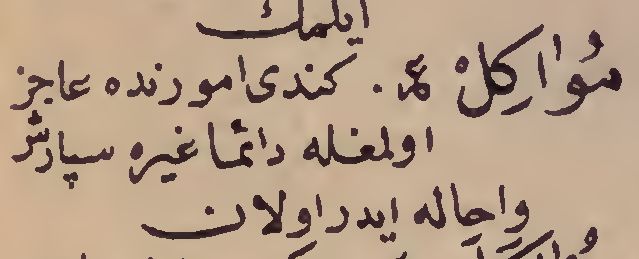 ايلمك
مُوَاكِلْ عم. كندى امورنده عاجز
اولمغله دائما غيره سپارش
واحاله ايدر اولان